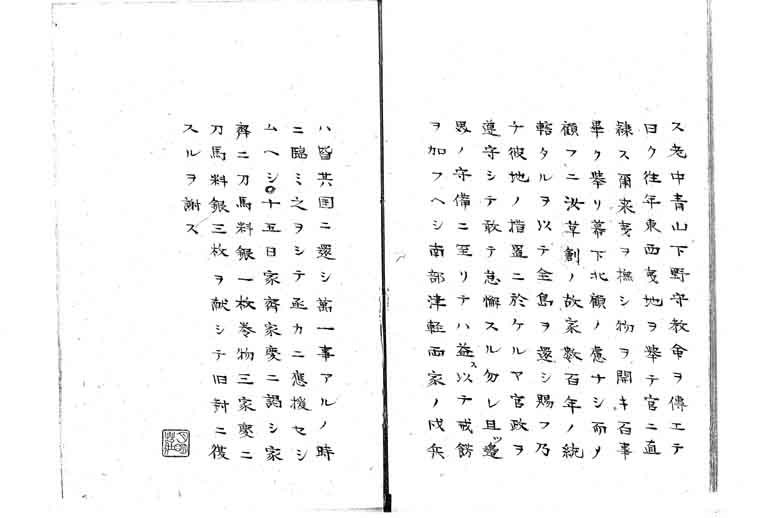 ス老中青山下野守教命ヲ傳エテ
曰ク往年東西夷地ヲ挙テ官ニ直
隷ス爾来夷ヲ撫シ物ヲ開キ百事
畢ク挙リ幕下北顧ノ慮ナシ而〆
顧フニ汝草創ノ故家数百年ノ統
轄タルヲ以テ全島ヲ還シ賜フ乃
チ彼地ノ措置ニ於ケルヤ官政ヲ
遵守シテ敢テ怠懈スル勿レ且ツ邊
界ノ守備ニ至リテハ益ス以テ戒飭
ヲ加フヘシ南部津軽両家ノ戍兵
ハ皆其国ニ還シ萬一事アルノ時
ニ臨ミ之ヲシテ亟カニ應援セシ
ムヘシ○十五日家齊家慶ニ謁シ家
齊ニ刀馬料銀一枚巻物三家慶ニ
刀馬料銀三枚ヲ献シテ旧封ニ復
スルヲ謝ス